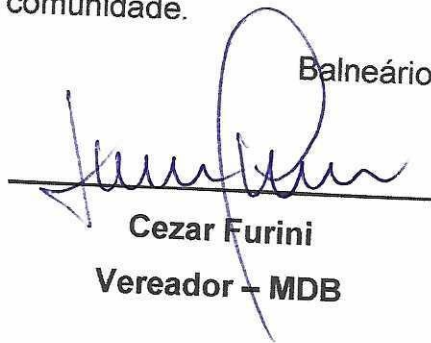 comunidade.
Balneário
Cezar Furini
Vereador – MDB